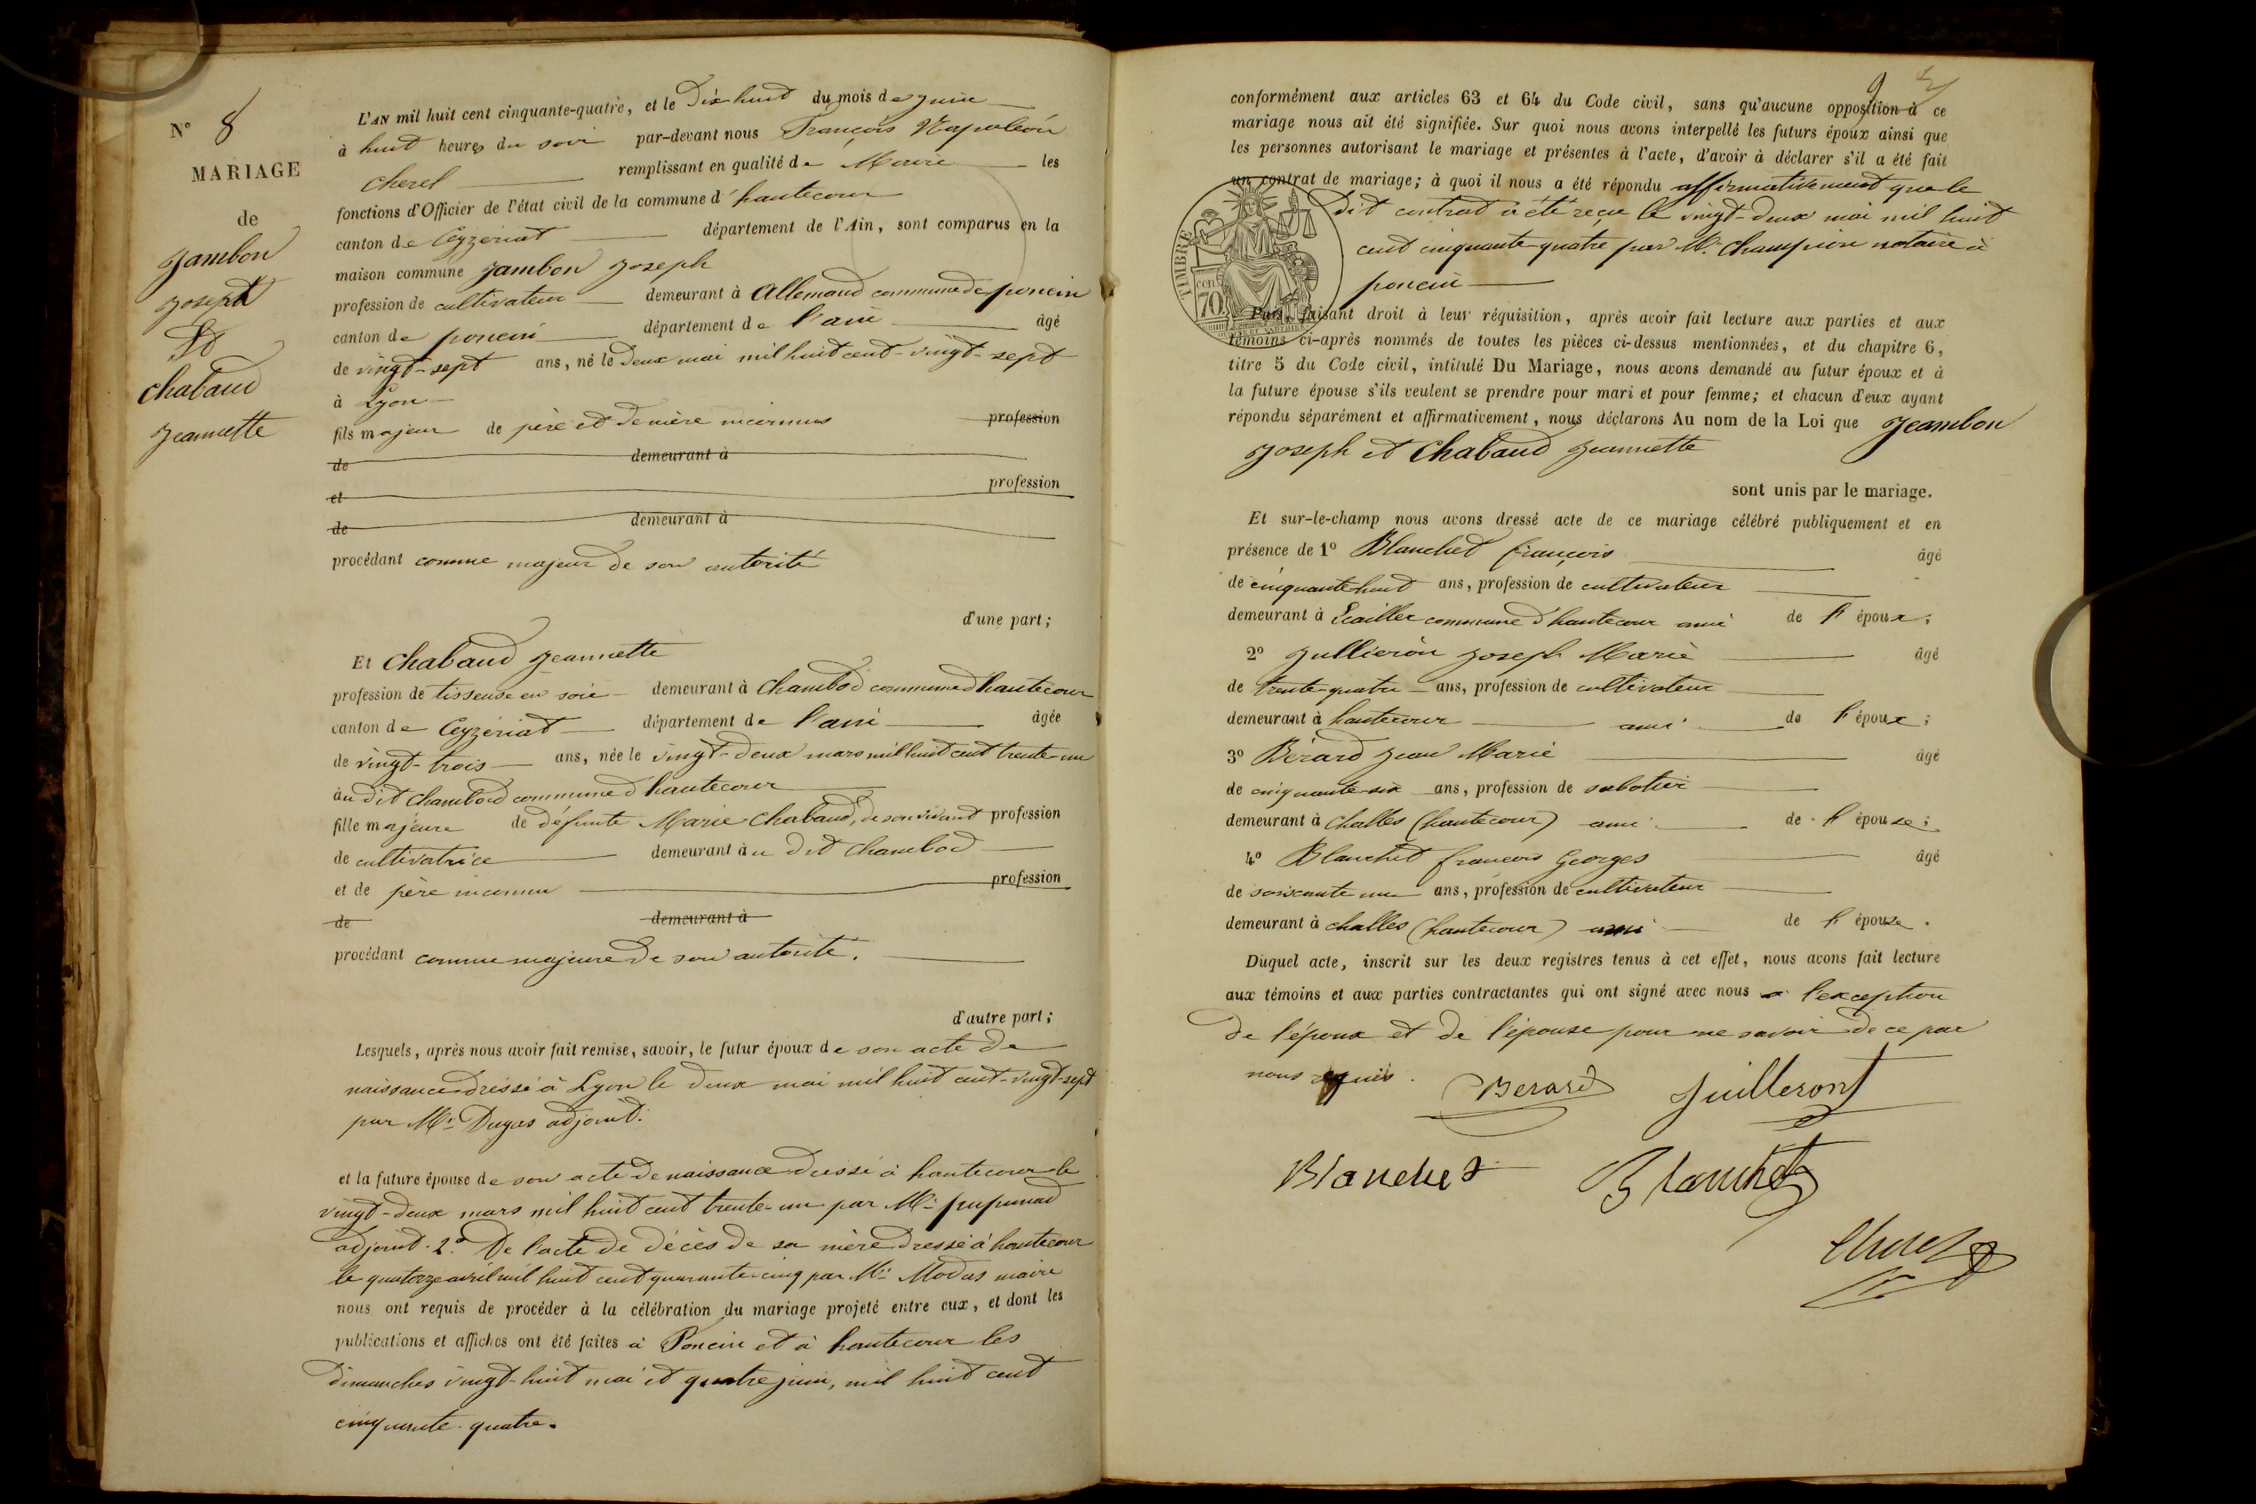 N° 8
MARIAGE
de
Jambon
Joseph
Et
Chabaud
Jeannette
L'AN mil huit cent cinquante-quatre, et le Dix huit du mois de juin
à huit heures du soir par-devant nous François Napoléon
Cherel remplissant en qualité de Maire les
fonctions d'Officier de l'état civil de la commune d'hautecour
canton de Ceyzériat département de l'Ain, sont comparus en la
maison commune Jambon Joseph
profession de cultivateur demeurant à Allemand commune de poncin
canton de poncin département de l'ain âgé
de vingt-sept ans, né le Deux mai mil huit cent-vingt-sept
à Lyon
fils majeur de père et de mère inconnus profession
de demeurant à
et profession
de demeurant à
procédant comme majeur de son autorité
d'une part;
Et Chabaud Jeannette
profession de tisseuse en soie demeurant à Chambod commune d'hautecour
canton de Ceyzériat département de l'ain âgée
de vingt-trois ans, née le vingt-deux mars mil huit cent trente-un
au dit Chambod commune d'hautecour
fille majeure de défunte Marie Chabaud, de son vivant profession
de cultivatrice demeurant au dit Chambod
et de père inconnu profession
de demeurant à
procédant comme majeure de son autorité.
d'autre part;
Lesquels, après nous avoir fait remise, savoir, le futur époux de son acte de
naissance dressé à Lyon le deux mai mil huit cent-vingt-sept
par Mr. Dugas adjoint.
et la future épouse de son acte de naissance dressé à hautecour le
vingt-deux mars mil huit cent trente-un par Mr.
adjoint. 2° De l'acte de décès de sa mère dressé à hautecour
le quatorze avril mil huit cent quarante-cinq par Mr. Modas maire
nous ont requis de procéder à la célébration du mariage projeté entre eux, et dont les
publications et affiches ont été faites à Poncin et à hautecour les
dimanches vingt-huit mai et quatre juin, mil huit cent
cinquante-quatre.
9
conformément aux articles 63 et 64 du Code civil, sans qu'aucune opposition à ce
mariage nous ait été signifiée. Sur quoi nous avons interpellé les futurs époux ainsi que
les personnes autorisant le mariage et présentes à l'acte, d'avoir à déclarer s'il a été fait
un contrat de mariage; à quoi il nous a été répondu affirmativement que le
dit contrat a été reçu le vingt-deux mai mil huit
cent cinquante-quatre par Mr. Champion notaire à
poncin
TIMBRE
cen
70
Puis, faisant droit à leur réquisition, après avoir fait lecture aux parties et aux
témoins ci-après nommés de toutes les pièces ci-dessus mentionnées, et du chapitre 6,
titre 5 du Code civil, intitulé Du Mariage, nous avons demandé au futur époux et à
la future épouse s'ils veulent se prendre pour mari et pour femme; et chacun d'eux ayant
répondu séparément et affirmativement, nous déclarons Au nom de la Loi que Jeambon
Joseph et Chabaud Jeannette
sont unis par le mariage.
Et sur-le-champ nous avons dressé acte de ce mariage célébré publiquement et en
présence de 1° Blanchet françois âgé
de cinquante huit ans, profession de cultivateur
demeurant à Ecailler commune d'hautecour ami de l'époux;
2° Jullieron Joseph Marie âgé
de trente-quatre ans, profession de cultivateur
demeurant à hautecour ami de l'époux;
3° Bérard Jean Marie âgé
de cinquante-six ans, profession de sabotier
demeurant à Challes (hautecour) ami de l'épouse;
4° Blanchet françois Georges âgé
de soixante un ans, profession de cultivateur
demeurant à challes (hautecour) ami de l'épouse.
Duquel acte, inscrit sur les deux registres tenus à cet effet, nous avons fait lecture
aux témoins et aux parties contractantes qui ont signé avec nous à l'exception
de l'époux et de l'épouse pour ne savoir de ce par
nous requis.
Berard Juilleront
Blanchet Blanchet
Cherel